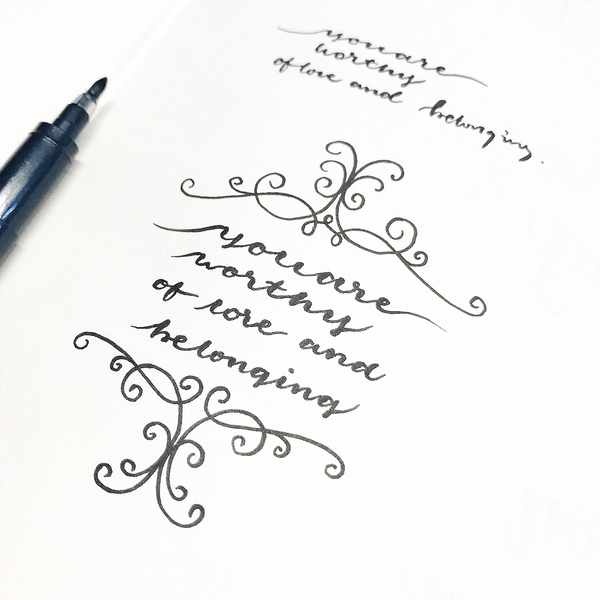 you are
worthy
of love and belonging.
you are
worthy
of love and
belonging